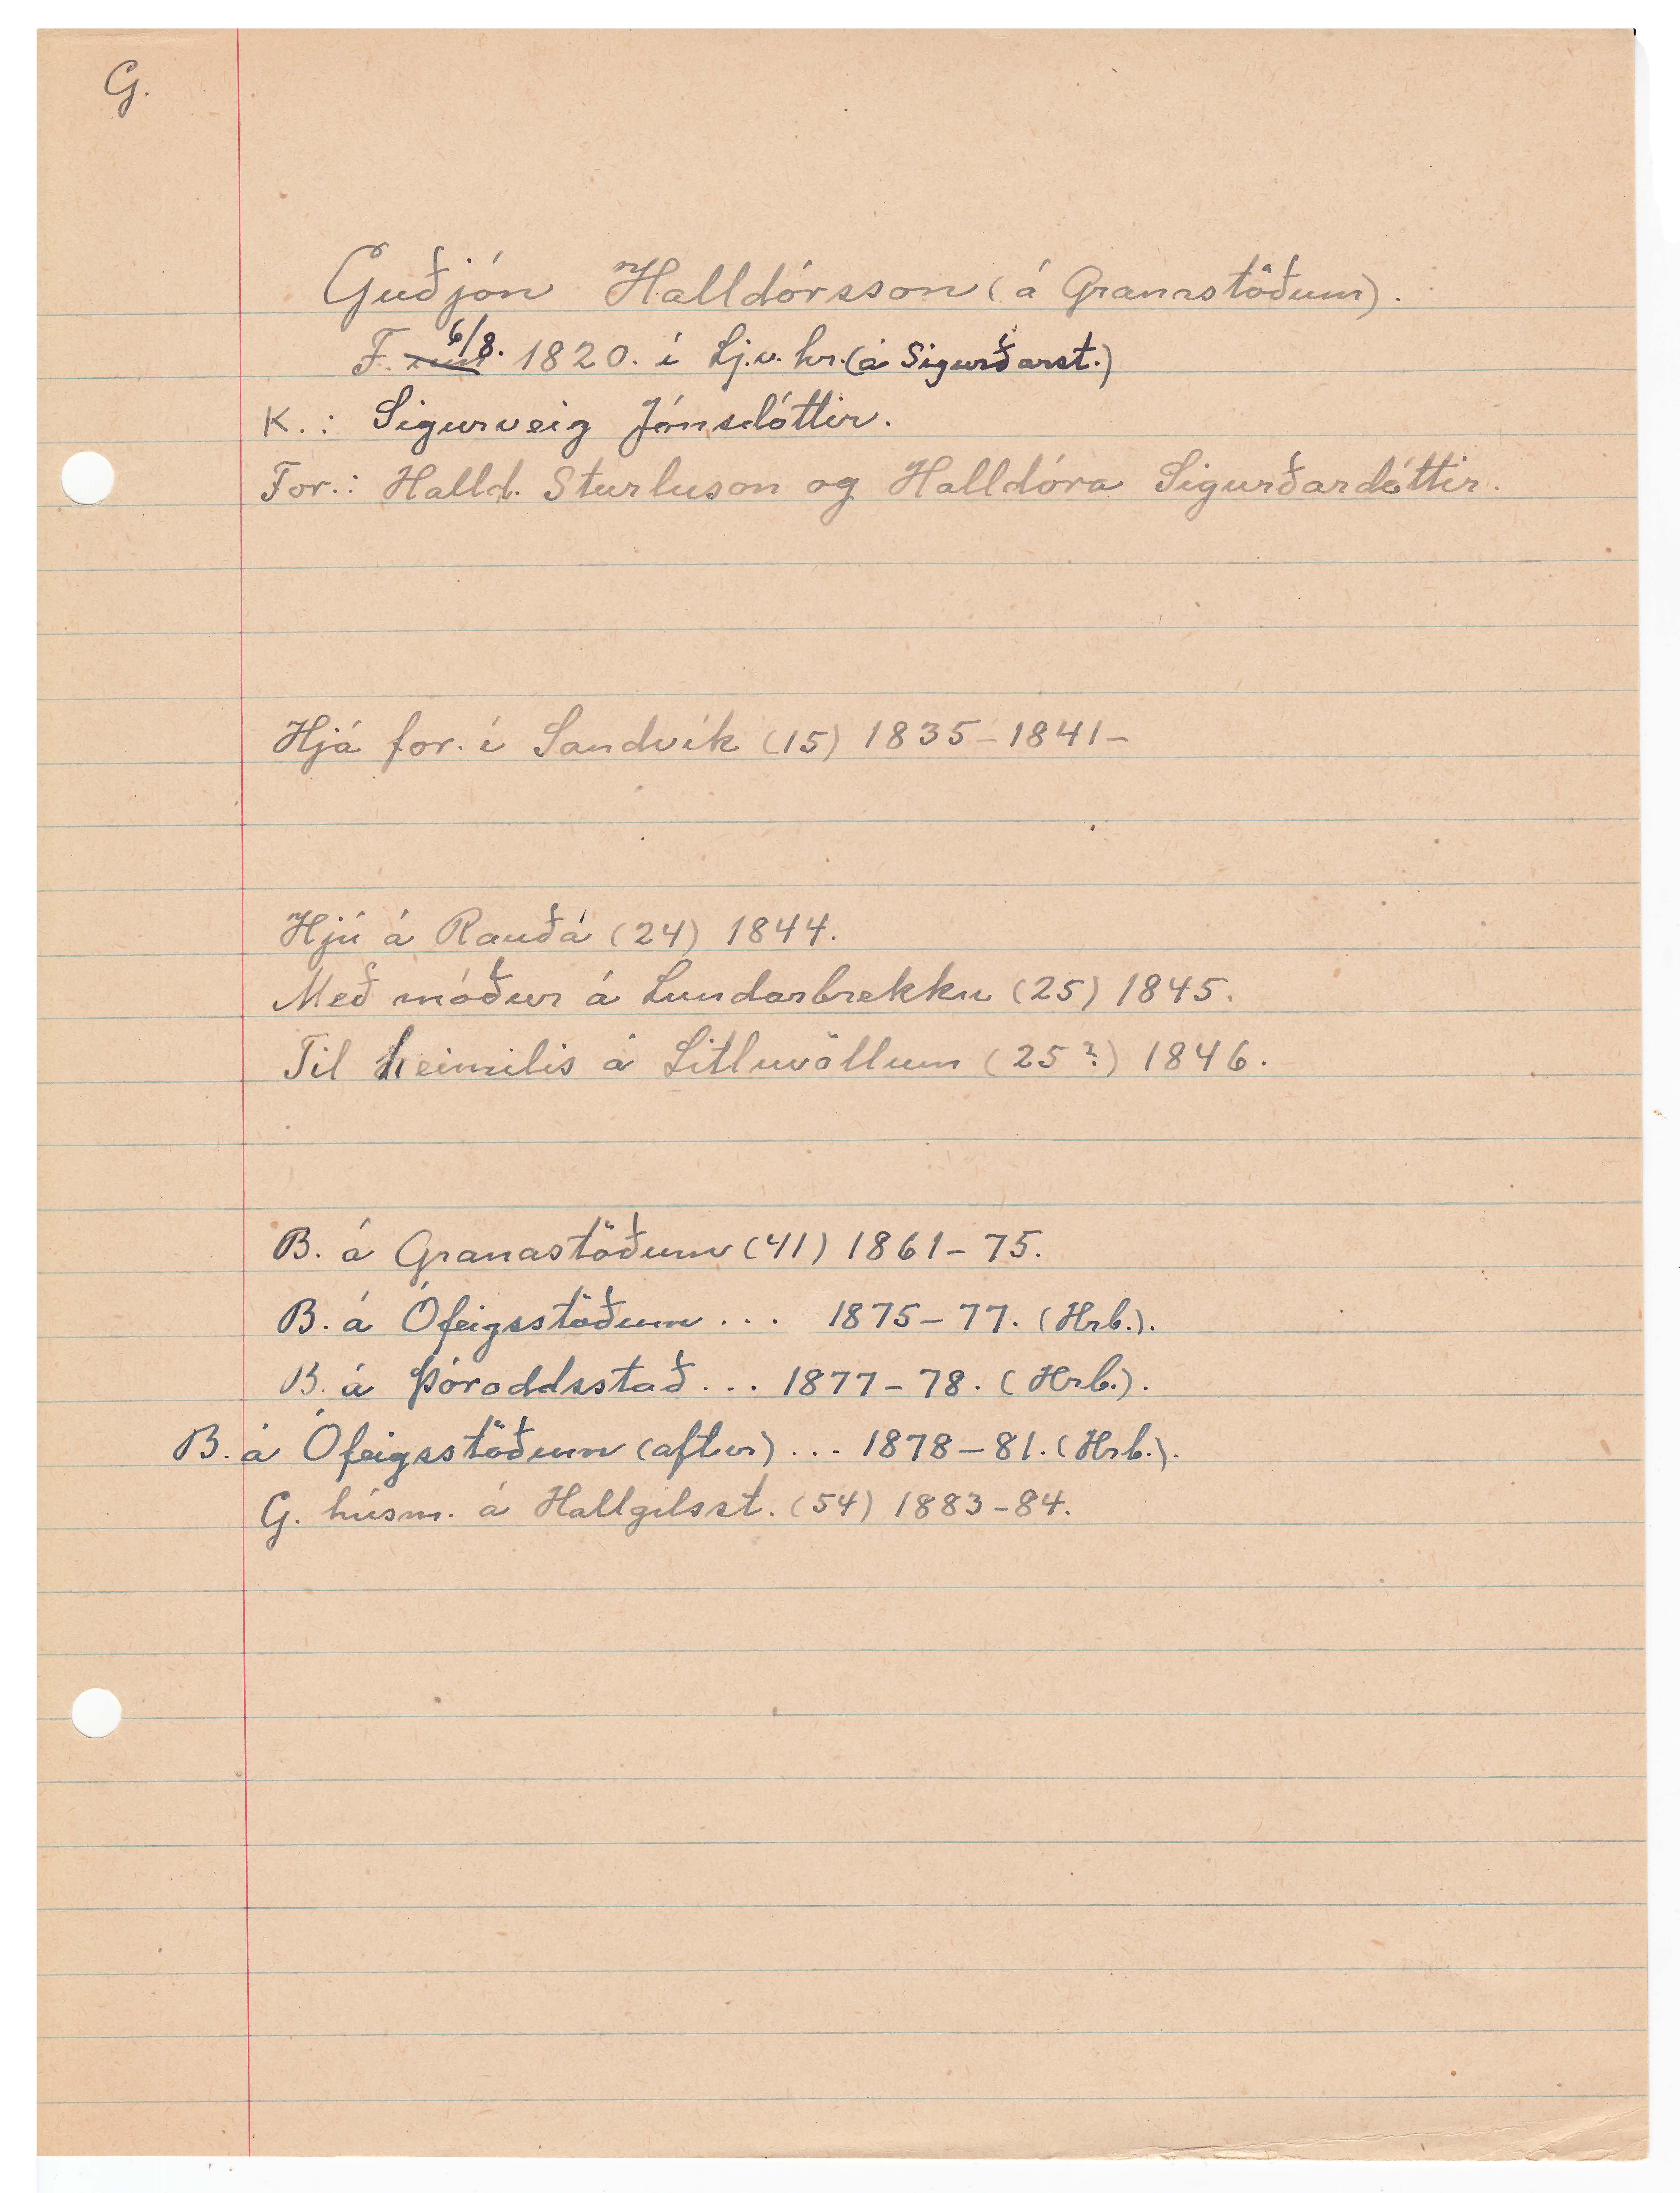 G.
Guðjón Halldórsson (á Granastöðum).
F. 6/8. 1820. í Lj.v. hr. (á Sigurðarst.)
K.: Sigurveig Jónsdóttir.
For.: Halld. Sturluson og Halldóra Sigurðardóttir.
Hjá for. í Sandvík (15) 1835-1841-
Hjú á Rauðá (24) 1844.
Með móður á Lundarbrekku (25) 1845.
Til heimilis á Litluvöllum (25?) 1846.
B. á Granastöðum (41) 1861-75.
B. á Ófeigsstöðum ... 1875-77. (Hrb.).
B. á Þóroddsstað ... 1877-78. (Hrb.).
B. á Ófeigsstöðum (aftur) ... 1878-81. (Hrb.).
G. húsm. á Hallgilsst. (54) 1883-84.